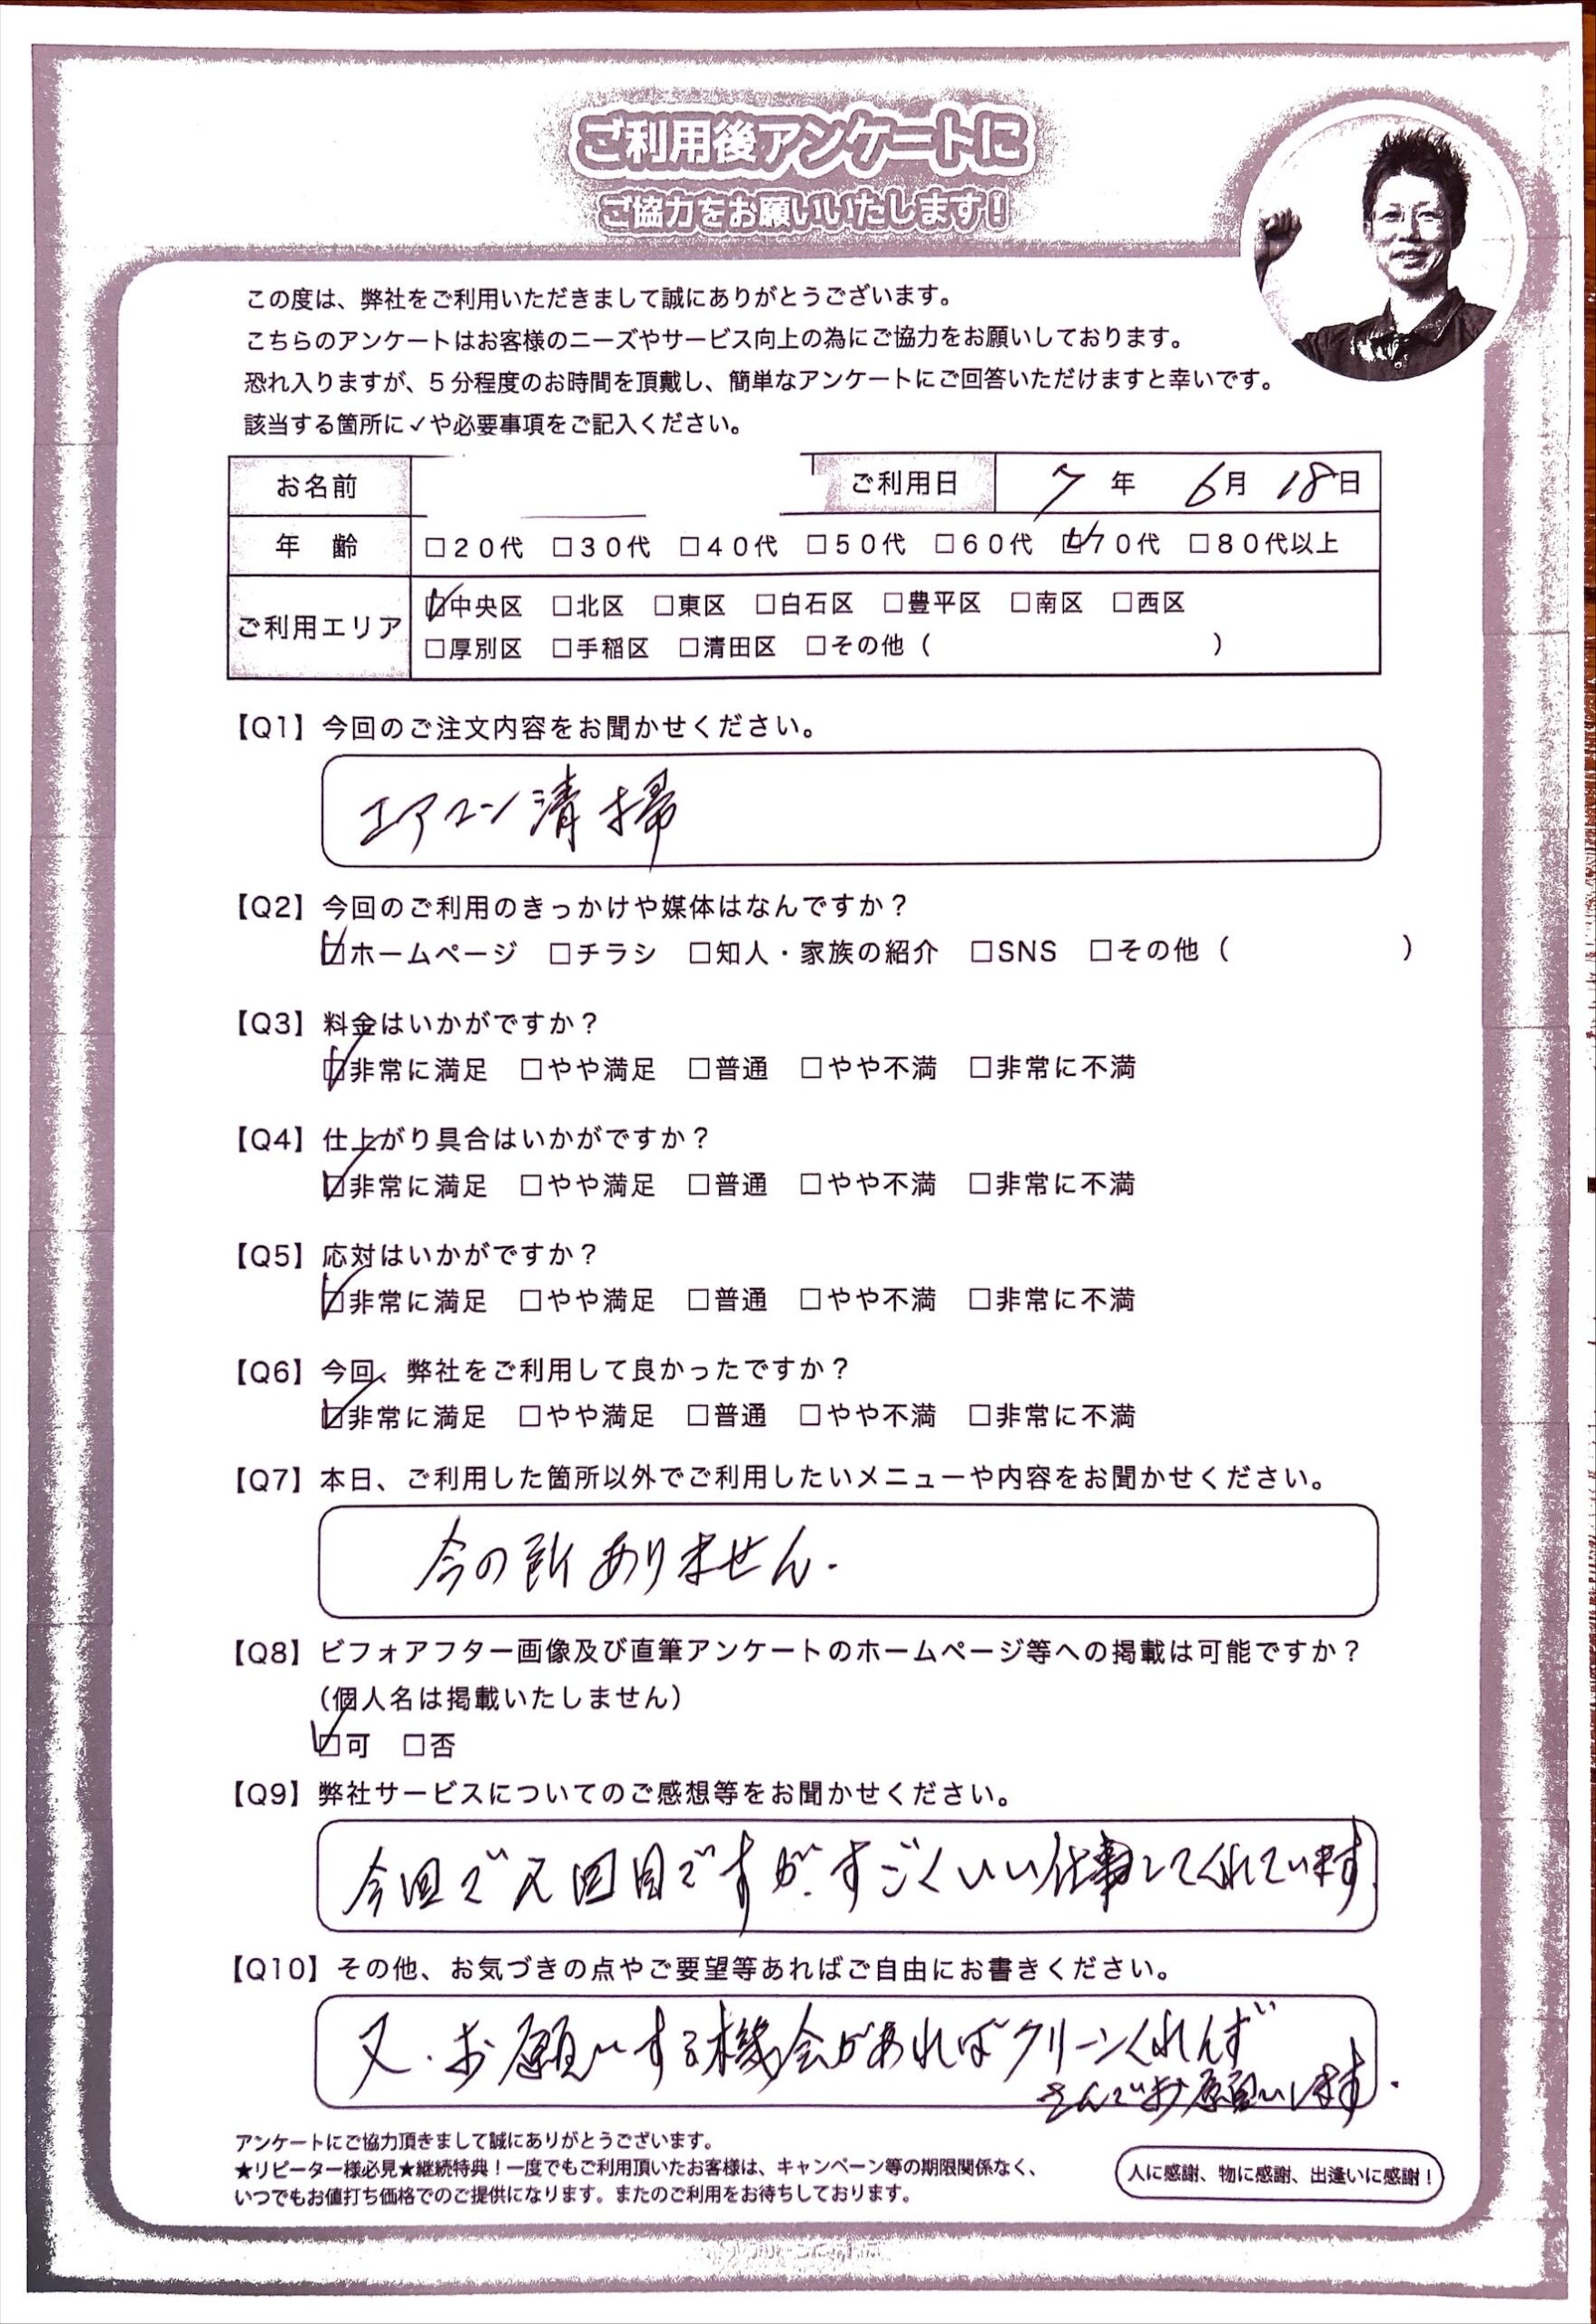 ご利用後アンケートに
ご協力をお願いいたします!
この度は、弊社をご利用いただきまして誠にありがとうございます。
こちらのアンケートはお客様のニーズやサービス向上の為にご協力をお願いしております。
恐れ入りますが、5分程度のお時間を頂戴し、簡単なアンケートにご回答いただけますと幸いです。
該当する箇所に✓や必要事項をご記入ください。
お名前 ご利用日 7年 6月 18日
年 齢 □20代 □30代 □40代 □50代 □60代 ☑70代 □80代以上
ご利用エリア ☑中央区 □北区 □東区 □白石区 □豊平区 □南区 □西区
□厚別区 □手稲区 □清田区 □その他( )
【Q1】今回のご注文内容をお聞かせください。
エアコン清掃
【Q2】今回のご利用のきっかけや媒体はなんですか?
☑ホームページ □チラシ □知人・家族の紹介 □SNS □その他( )
【Q3】料金はいかがですか?
☑非常に満足 □やや満足 □普通 □やや不満 □非常に不満
【Q4】仕上がり具合はいかがですか?
☑非常に満足 □やや満足 □普通 □やや不満 □非常に不満
【Q5】応対はいかがですか?
☑非常に満足 □やや満足 □普通 □やや不満 □非常に不満
【Q6】今回、弊社をご利用して良かったですか?
☑非常に満足 □やや満足 □普通 □やや不満 □非常に不満
【Q7】本日、ご利用した箇所以外でご利用したいメニューや内容をお聞かせください。
今の所ありません.
【Q8】ビフォアフター画像及び直筆アンケートのホームページ等への掲載は可能ですか?
(個人名は掲載いたしません)
☑可 □否
【Q9】弊社サービスについてのご感想等をお聞かせください。
今回で2回目ですが、すごくいい仕事してくれています.
【Q10】その他、お気づきの点やご要望等あればご自由にお書きください。
又.お願いする機会があればクリーンくれんず
さんでお願いします.
アンケートにご協力頂きまして誠にありがとうございます。
★リピーター様必見★継続特典!一度でもご利用頂いたお客様は、キャンペーン等の期限関係なく、
いつでもお値打ち価格でのご提供になります。またのご利用をお待ちしております。
人に感謝、物に感謝、出逢いに感謝!